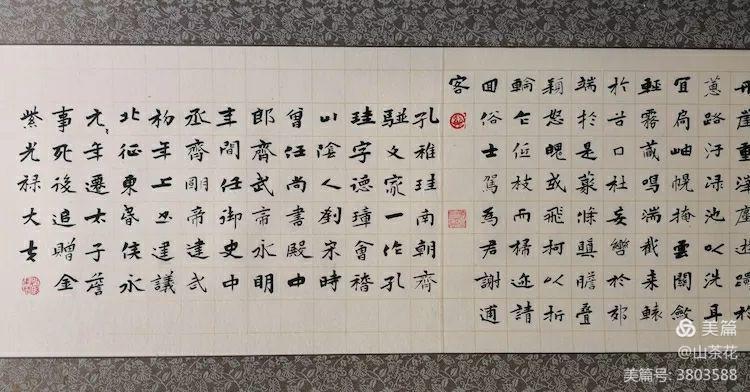 丹崖重滓塵游躅於
蕙路汙渌池以洗耳
宜扃岫幌掩雲關斂
輕霧藏鳴湍截来轅
於谷口杜妄轡於郊
端於是叢條瞋膽疊
穎怒魄或飛柯以折
輪乍低枝而掃迹請
回俗士駕為君謝逋
客
孔稚珪南朝齊
駢文家一作孔
珪字德璋會稽
山陰人劉宋時
曾任尚書殿中
郎齊武帝永明
年間任御史中
丞齊明帝建武
初年上书建議
北征東昏侯永
元〻年遷太子詹
事死後追贈金
紫光禄大夫
美篇
@山茶花
美篇号: 3803588